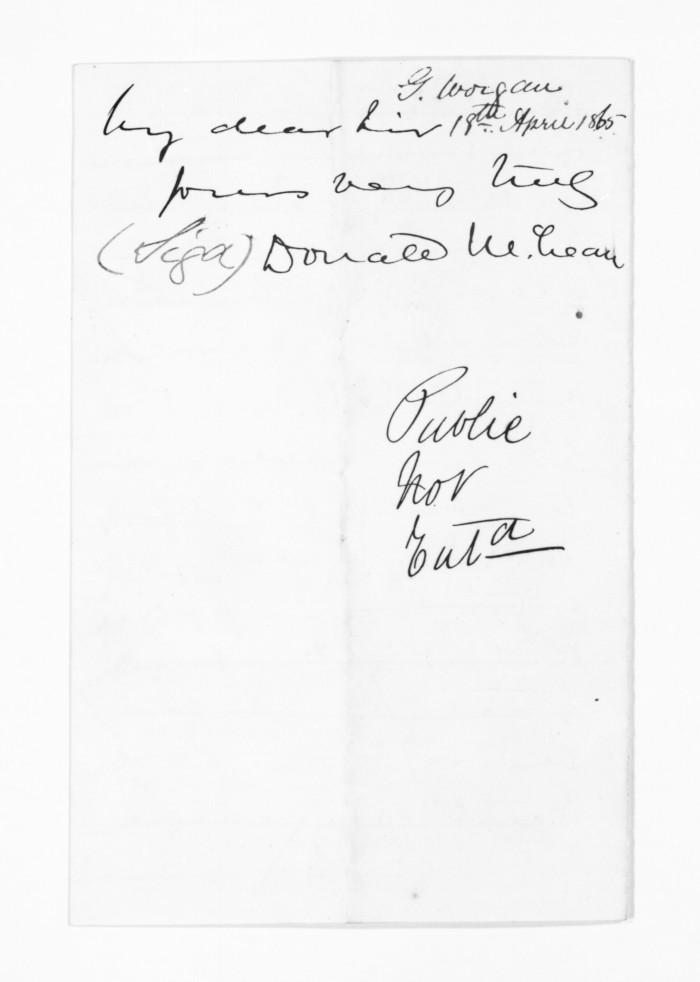 G. Worgan
18th April 1865
My dear Sir
yours very truly
(Sigd) Donald McLean
Public
Not
Entd